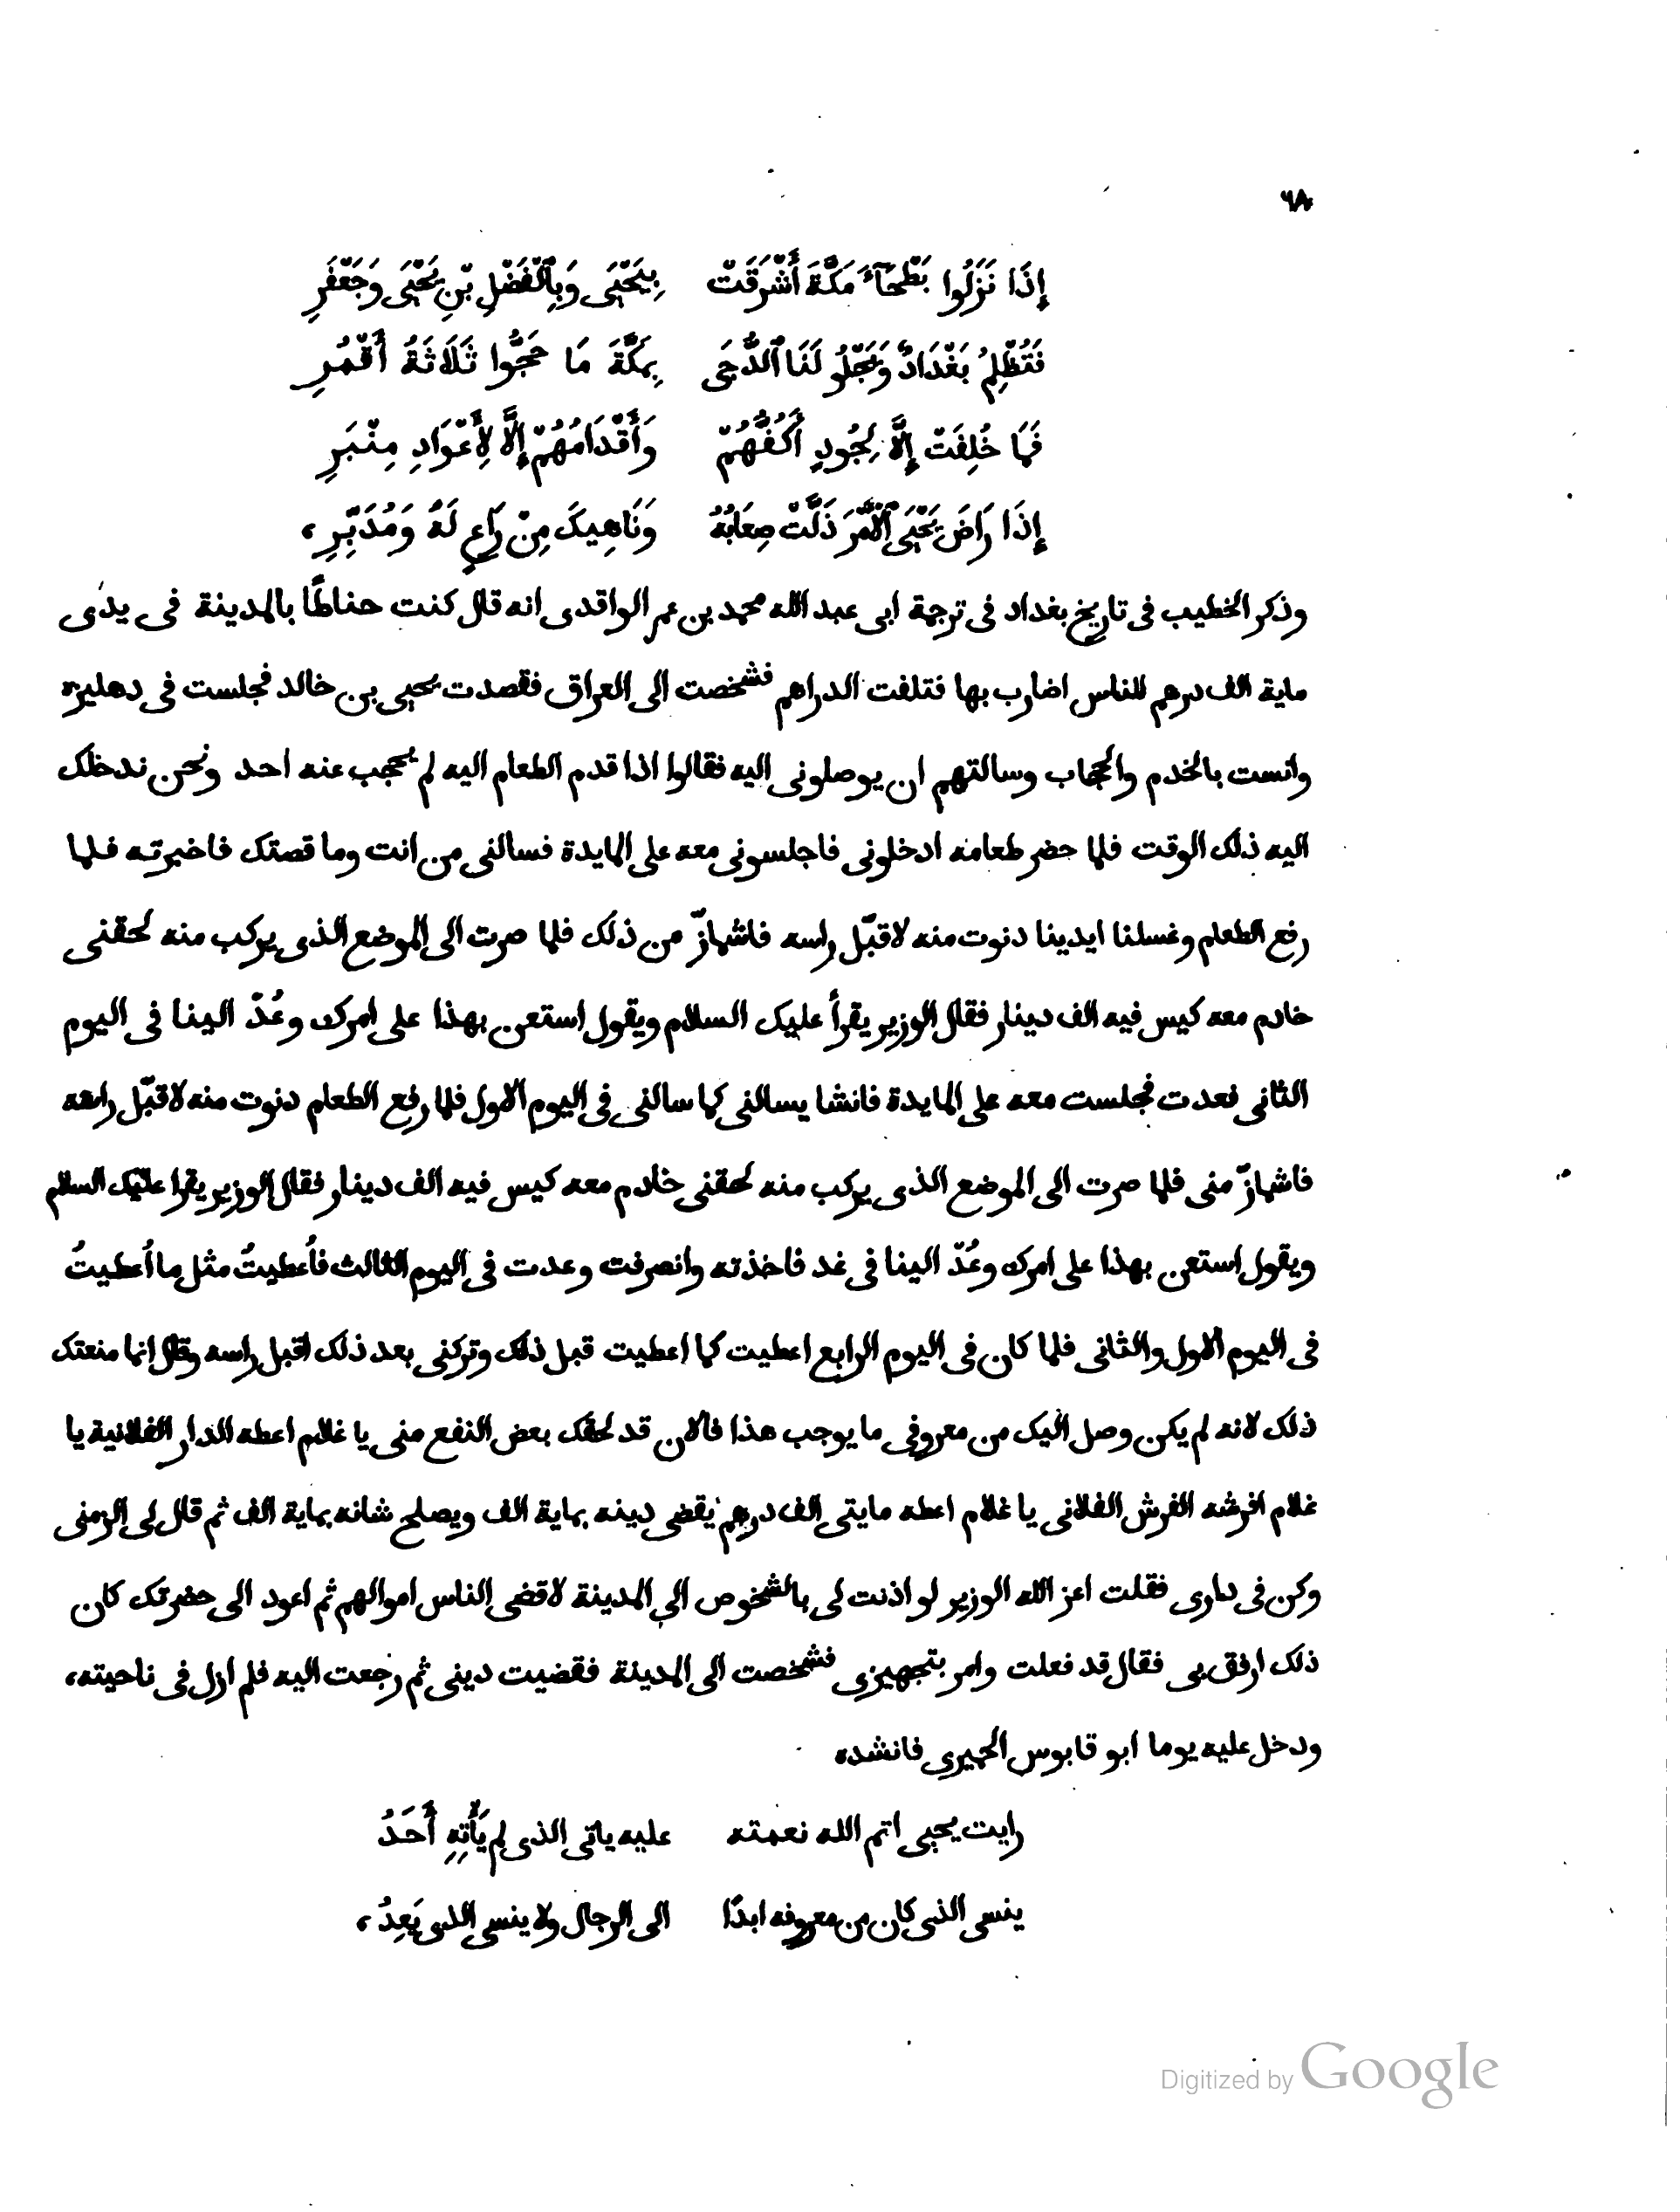 ٦٨
إِذَا نَزَلُوا بَطْحَآءَ مَكَّةَ أَشْرَقَتْ بِيَحْيَى وَبِٱلْفَضْلِ بْنِ يَحْيَى وَجَعْفَرِ
فَتُظْلِمُ بَغْدَادٌ وَيَجْلُو لَنَا ٱلدُّجَى بِمَكَّةَ مَا حَجُّوا ثَلَاثَةُ أَقْمُرِ
فَمَا خُلِقَتْ إِلَّا لِجُودٍ أَكُفُّهُمْ وَأَقْدَامُهُمْ إِلَّا لِأَعْوَادِ مِنْبَرِ
إِذَا رَاضَ يَحْيَى ٱلْأَمْرَ ذَلَّتْ صِعَابُهُ وَنَاهِيكَ مِنْ رَاعٍ لَهُ وَمُدَبِّرِ،
وذكر الخطيب فى تاريخ بغداد فى ترجمة ابى عبد الله محمد بن عمر الواقدى انه قال كنت حناطًا بالمدينة فى يدى
ماية الف درهم للناس اضارب بها فتلفت الدراهم فشخصت الى العراق فقصدت يحيى بن خالد فجلست فى دهليزه
وانست بالخدم والحجاب وسالتهم ان يوصلونى اليه فقالوا اذا قدم الطعام اليه لم يحجب عنه احد ونحن ندخلك
اليه ذلك الوقت فلما حضر طعامه ادخلونى فاجلسونى معه على المايدة فسالنى من انت وما قصتك فاخبرته فلما
رفع الطعام وغسلنا ايدينا دنوت منه لاقبّل راسه فاشمازّ من ذلك فلما صرت الى الموضع الذى يركب منه لحقنى
خادم معه كيس فيه الف دينار فقال الوزير يقرأ عليك السلام ويقول استعن بهذا على امرك وعُدّ الينا فى اليوم
الثانى فعدت فجلست معه على المايدة فانشا يسالنى كما سالنى فى اليوم الاول فلما رفع الطعام دنوت منه لاقبّل راسه
فاشمازّ منى فلما صرت الى الموضع الذى يركب منه لحقنى خادم معه كيس فيه الف دينار فقال الوزير يقرا عليك السلام
ويقول استعن بهذا على امرك وعُدّ الينا فى غد فاخذته وانصرفت وعدت فى اليوم الثالث فأعطيتُ مثل ما أعطيتُ
فى اليوم الاول والثانى فلما كان فى اليوم الرابع اعطيت كما اعطيت قبل ذلك وتركنى بعد ذلك اقبل راسه وقال انما منعتك
ذلك لانه لم يكن وصل اليك من معروفى ما يوجب هذا فالان قد لحقك بعض النفع منى يا غلام اعطه الدار الفلانية يا
غلام افرشه الفرش الفلانى يا غلام اعطه مايتى الف درهم يقضى دينه بماية الف ويصلح شانه بماية الف ثم قال لى الزمنى
وكن فى دارى فقلت اعز الله الوزير لو اذنت لى بالشخوص الى المدينة لاقضى الناس اموالهم ثم اعود الى حضرتك كان
ذلك ارفق بى فقال قد فعلت وامر بتجهيزى فشخصت الى المدينة فقضيت دينى ثم رجعت اليه فلم ازل فى ناحيته،
ودخل عليه يوما ابو قابوس الحميرى فانشده
رايت يحيى اتم الله نعمته عليه ياتى الذى لم يَأْتِهِ أَحَدُ
ينسى الذى كان من معروفه ابدًا الى الرجال ولا ينسى الذى يَعِدُ،
Digitized by Google